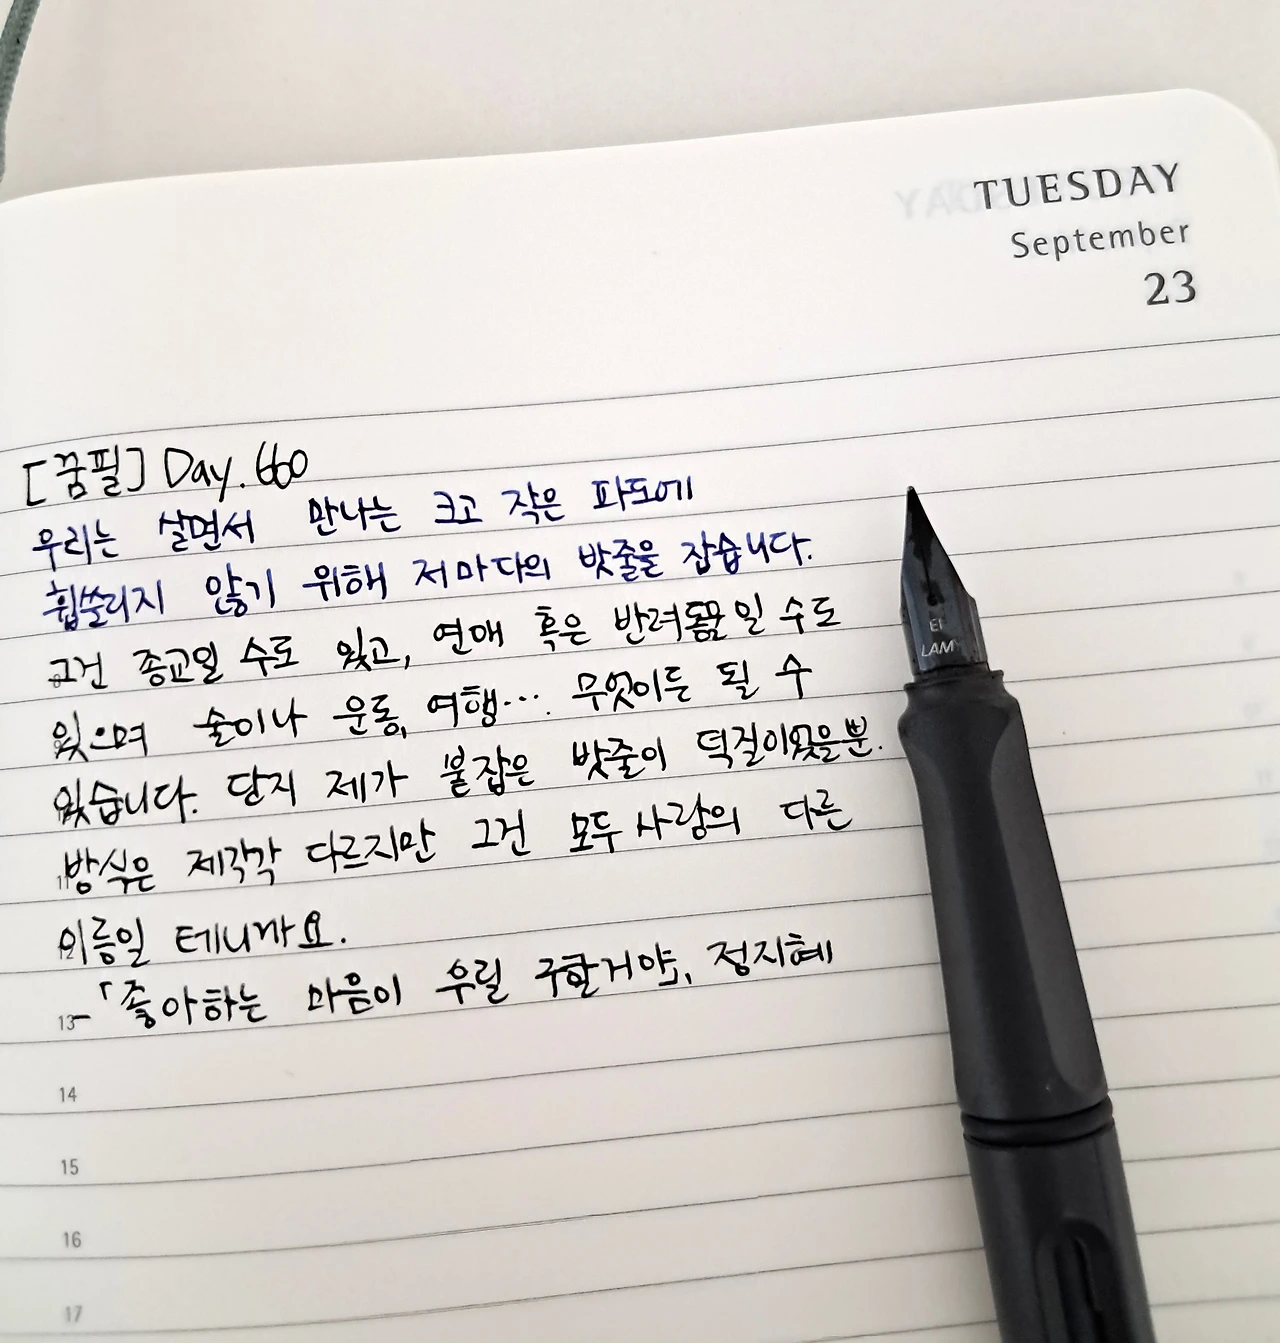 TUESDAY
September
23
[꿈필] Day. 660
우리는 살면서 만나는 크고 작은 파도에
휩쓸리지 않기 위해 저마다의 밧줄을 잡습니다.
그건 종교일 수도 있고, 연애 혹은 반려동물일 수도
있으며 술이나 운동, 여행... 무엇이든 될 수
있습니다. 단지 제가 붙잡은 밧줄이 덕질이었을뿐.
방식은 제각각 다르지만 그건 모두 사랑의 다른
이름일 테니까요.
-「좋아하는 마음이 우릴 구할거야」, 정지혜
11
12
13
14
15
16
17
EF
LAMY